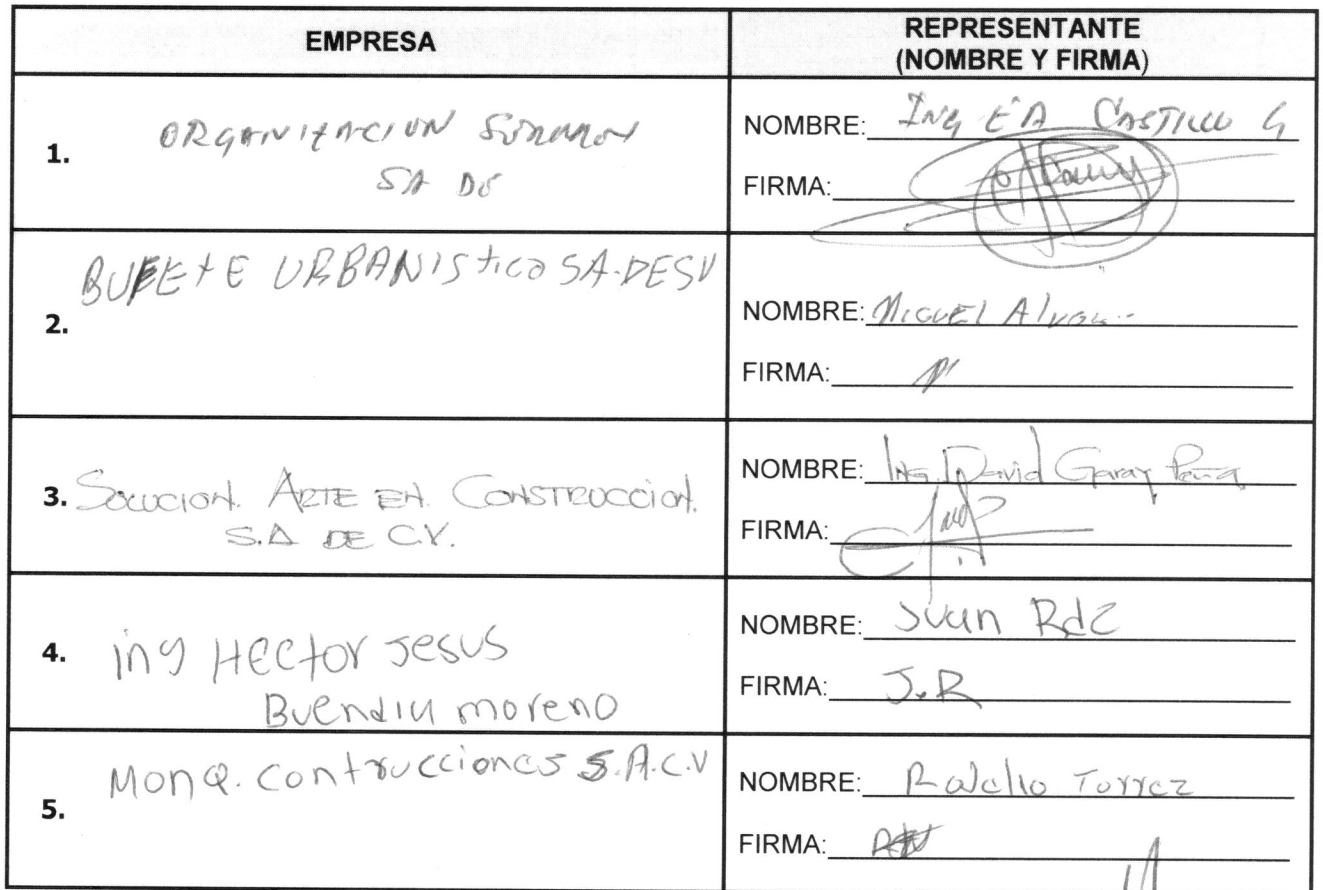 EMPRESA
REPRESENTANTE
(NOMBRE Y FIRMA)
1.
ORGANIZACION
SA DE
NOMBRE: Ing E A CASTILLO G
FIRMA:
2.
BUFETE URBANIStico SA.DESV
NOMBRE: MIGUEl
FIRMA:
3. SOLUCION. ARTE EN. CONSTRUCCION.
S.A DE C.V.
NOMBRE: Ing. David Garay Peña
FIRMA:
4.
ing Hector Jesus
Buendia moreno
NOMBRE: Juan Rdz
FIRMA: J.R
5.
Monq. contrucciones S.A.C.V
NOMBRE: Torrez
FIRMA: